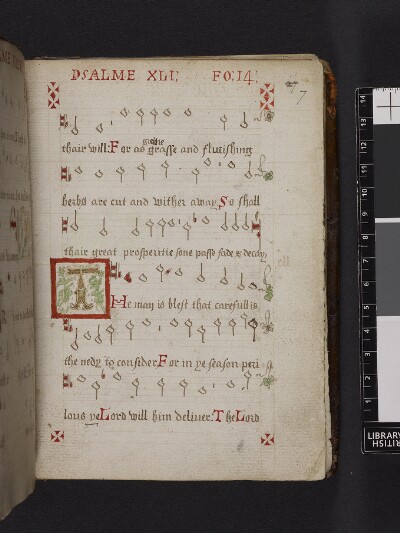 PSALME XLI: FO: 14:
7
thair will: For as grasse and flurishing
herbs are cut and wither away, So shall
thair great prosperitie sone passe fade & decay,
The man is blest that carefull is
the nedy to consider For in ye season peri
lous ye Lord will him deliuer: The Lord
14
13
12
11
10
9
8
7
6
5
4
3
2
1
BRITISH
LIBRARY